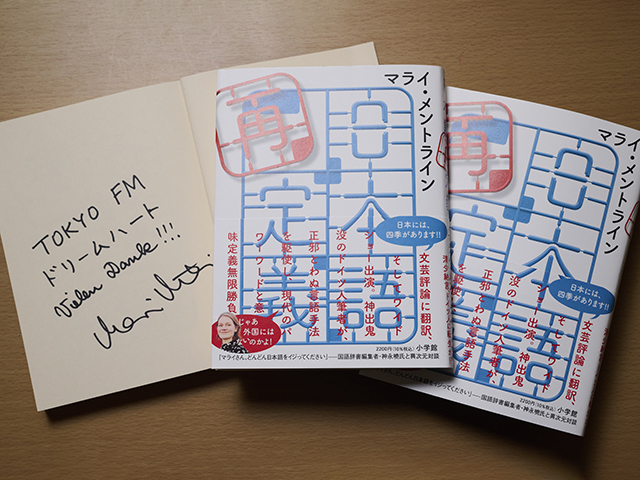 TOKYO FM
ドリームハート
Vielen Dank!!!
マライ・メントライン
日本語
再定義
日本には、
四季があります!!
文芸評論に翻訳、
そしてワイド
ショー出演。神出鬼
没のドイツ人筆者が、
正邪とわぬ言語手法
を駆使し、現代のパ
ワーワードと意
味定義無限勝負
じゃあ
外国には
ないのかよ!
2200円(10%税込) 小学館
「マライさん、どんどん日本語をイジってください」──国語辞書編集者・神永曉氏と異次元対談
マライ・メントライン
日本語
再
日本には、
四季があります!!
文芸評論に翻訳、
そしてワイド
ショー出演。神出鬼
没のドイツ人筆者が、
正邪とわぬ言語手法
を駆使
2200円(10%税込) 小学館
イジってください」──国語辞書編集者・神永曉氏と異次元対談